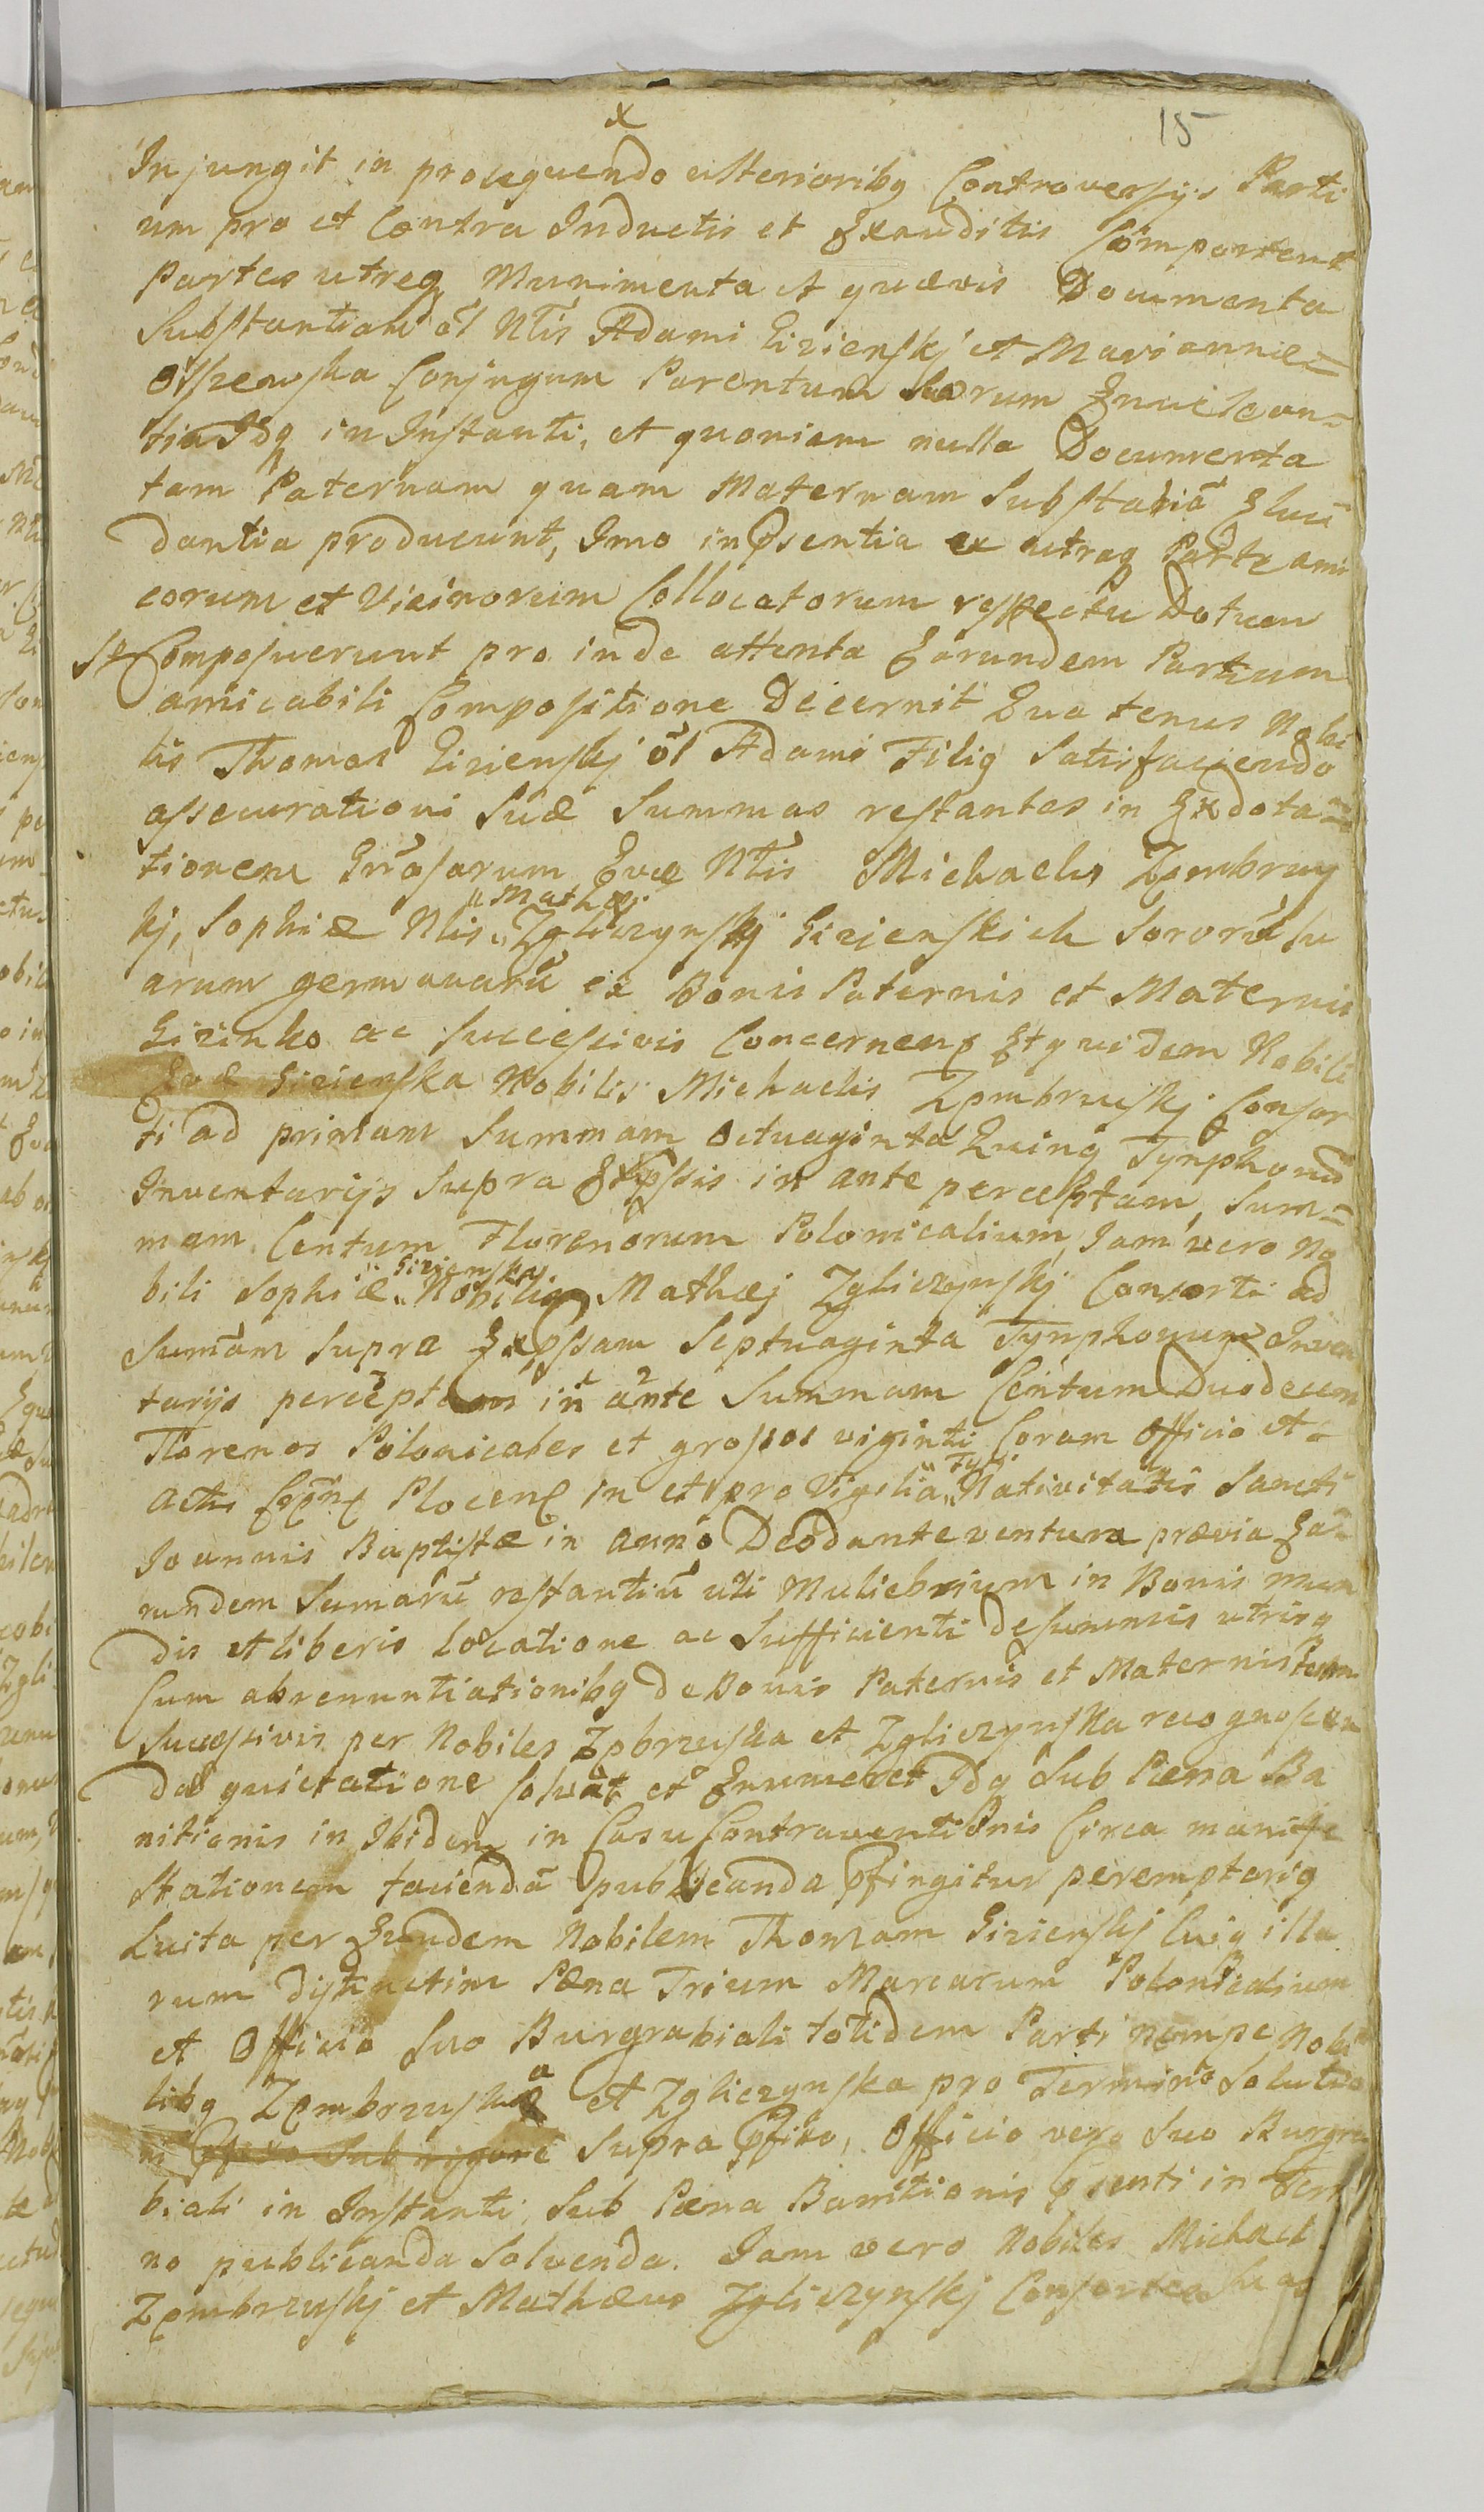 x
15
Injungit in prosequendo ulterioribq Controversijs Parti
um pro et Contra Inductis et Exauditis Comportent
Partes utreq Munimenta et quævis Documenta
Substantiam ol Ntis Adami Gizienskj et Mariannæ
Olszewska Conjugum Parentum Suorum Enuclean=
tia Idq in Instanti, et quoniam nulla Documenta
tam Paternam quam Maternam Substantiā Eluci
dantia producunt, Imo in Psentia ex utraq Parte ami
corum et Vicinorum Collocatorum respectu Dotum
se Composuerunt pro inde attenta Earundem Partium
amicabili Compositione Decernit Quatenus Nobi
lis Thomas Gizienskj ol Adami Filiq Satisfaciendo
assecurationi Suæ Summas restantes in Exdota=
tionem Gnosarum Evæ Ntis Michaelis Zembrzus
kj, Sophiæ Ntis „Mathæj Zgliczynskj Gizienskich Sororū su
arum germanarū ex Bonis Paternis et Maternis
Gizinko ac successivis Concernen Et quidem Nobili
Evæ Gizienska Nobilis Michaelis Zembrzuskj Consor
ti ad primam Summam Octuaginta Quinq Tynphonū
Inventarijs Supra Expssis in ante perceptam, Sum=
mam Centum Florenorum Polonicalium, Jam vero No
bili Sophiæ „Gizienska Nobilis Mathæj Zgliczynskj Consorti ad
Sumam Supra Expssam Septuaginta Tynphonum Inven
tarijs perceptam in ante Summam Centum Duodecem
Florenos Polonicales et grossos viginti Coram Officio et
Actis Plocen in et pro Vigilia „Festi Nativitatis Sancti
Joannis Baptistæ in Anno Deo dante venturo prævia Ea=
rundem Sumarū restantiū uti Muliebrium in Bonis mun
dis et liberis locatione ac Sufficienti de summis utrisq
Cum abrenuntiationibq de Bonis Paternis et Maternis
Successivis per Nobiles Zembrzuska et Zgliczynska recognoscen
da quietatione solvat et Enumeret Idq Sub Pæna Ba
nitionis in Ibidem in Casu Contraventionis Circa manife
stationem faciendā publicanda Pfingitur peremptoriq
Luita per Eundem Nobilem Thomam Gizienskj Cuiq illa
rum distinctim Pæna Trium Marcarum Polonicalium
et Officio Suo Burgrabiali totidem Parti nempe Nobi
libq Zembrzuska et Zgliczynska pro Termino Solutio
ni Supra Pfixo, Officio vero Suo Burgra
biali in Instanti Sub Pæna Banitionis Psenti in Termi
no publicanda Solvenda. Jam vero Nobiles Michael
Zembrzuskj et Mathæus Zgliczynskj Consortes suas